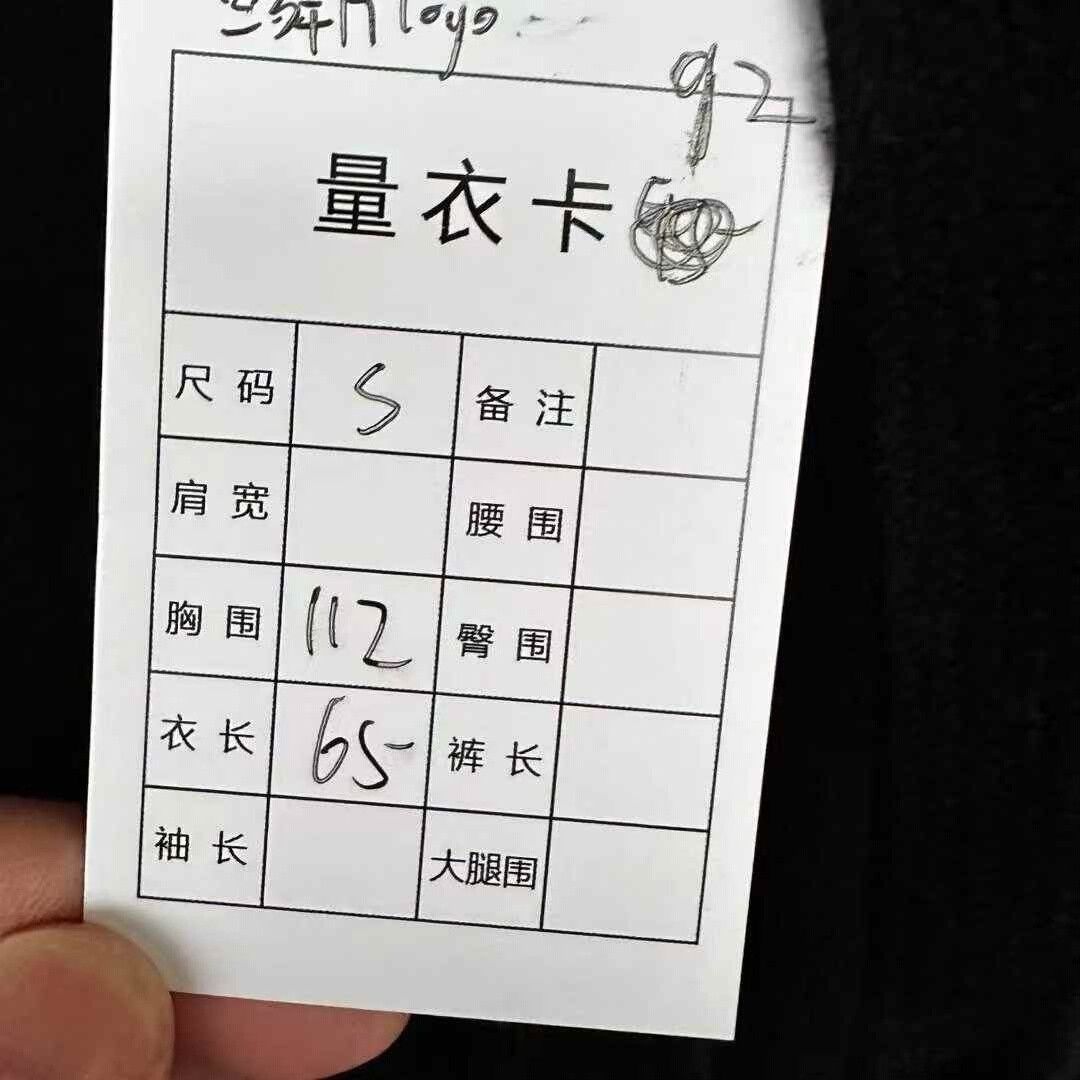 logo
92
量衣卡
尺码 S 备注
肩宽 腰围
胸围 112 臀围
衣长 65 裤长
袖长 大腿围